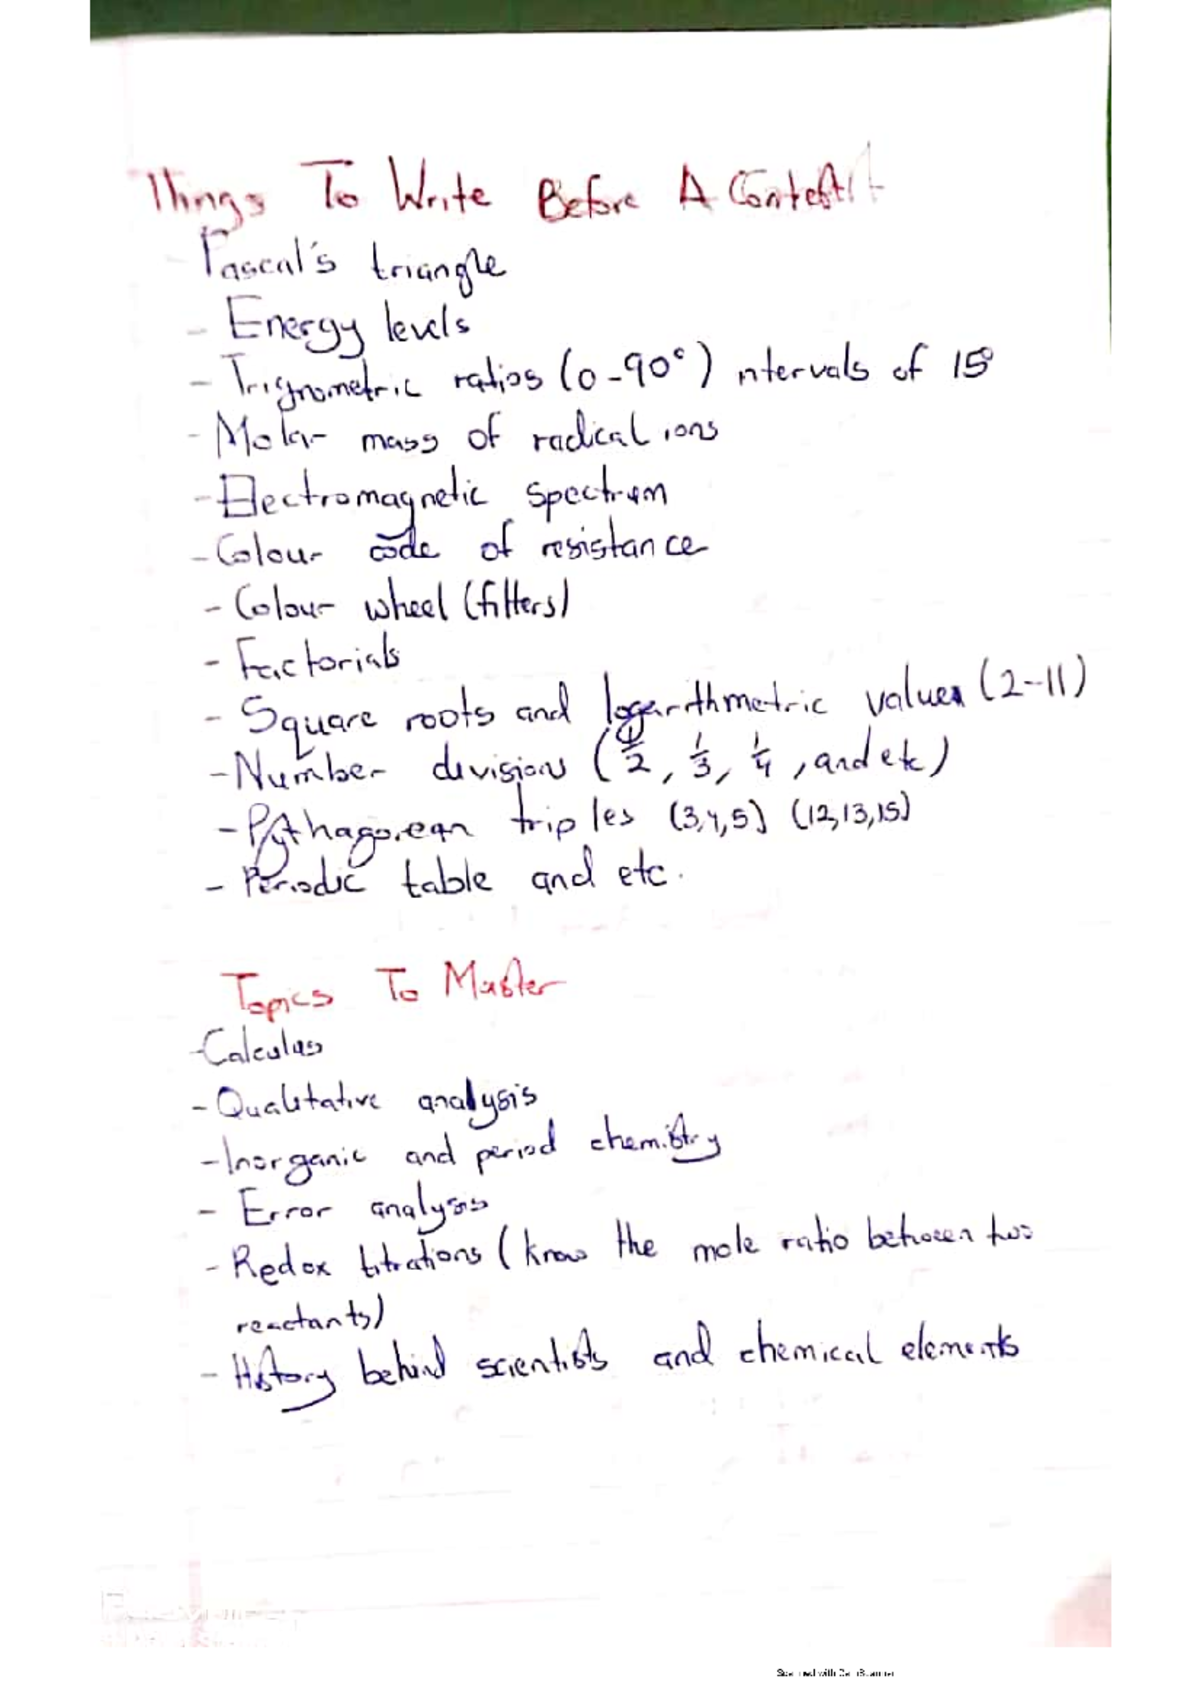 Things To Write Before A Contest
- Pascal's triangle
- Energy levels
- Trignometric ratios (0-90°) ntervals of 15°
- Molar mass of radical ions
- Electromagnetic spectrum
- Colour code of resistance
- Colour wheel (filters)
- Factorials
- Square roots and logarithmetric values (2-11)
- Number divisions (1/2, 1/3, 1/4, and etc)
- Pythagorean triples (3,4,5) (12,13,15)
- Periodic table and etc.
Topics To Master
- Calculus
- Qualitative analysis
- Inorganic and period chemistry
- Error analysis
- Redox titrations (know the mole ratio between two
reactants)
- History behind scientists and chemical elements
Scanned with CamScanner